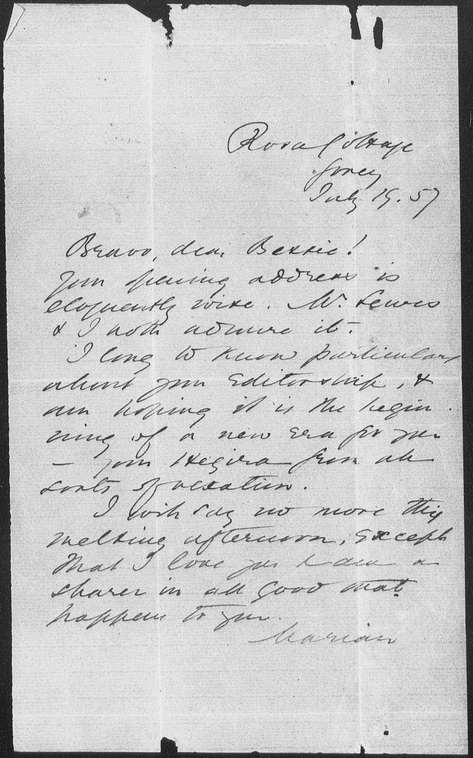 Rosa Cottage
Gorey
July 19. 57
Bravo, dear Bessie!
Your opening address is
eloquently wise. Mr. Lewes
& I both admire it.
I long to know particulars
about your Editorship, &
am hoping it is the begin
ning of a new era for you
— your Hegira from all
sorts of vexation.
I will say no more this
melting afternoon, except
that I love you & am a
sharer in all good that
happens to you.
Marian